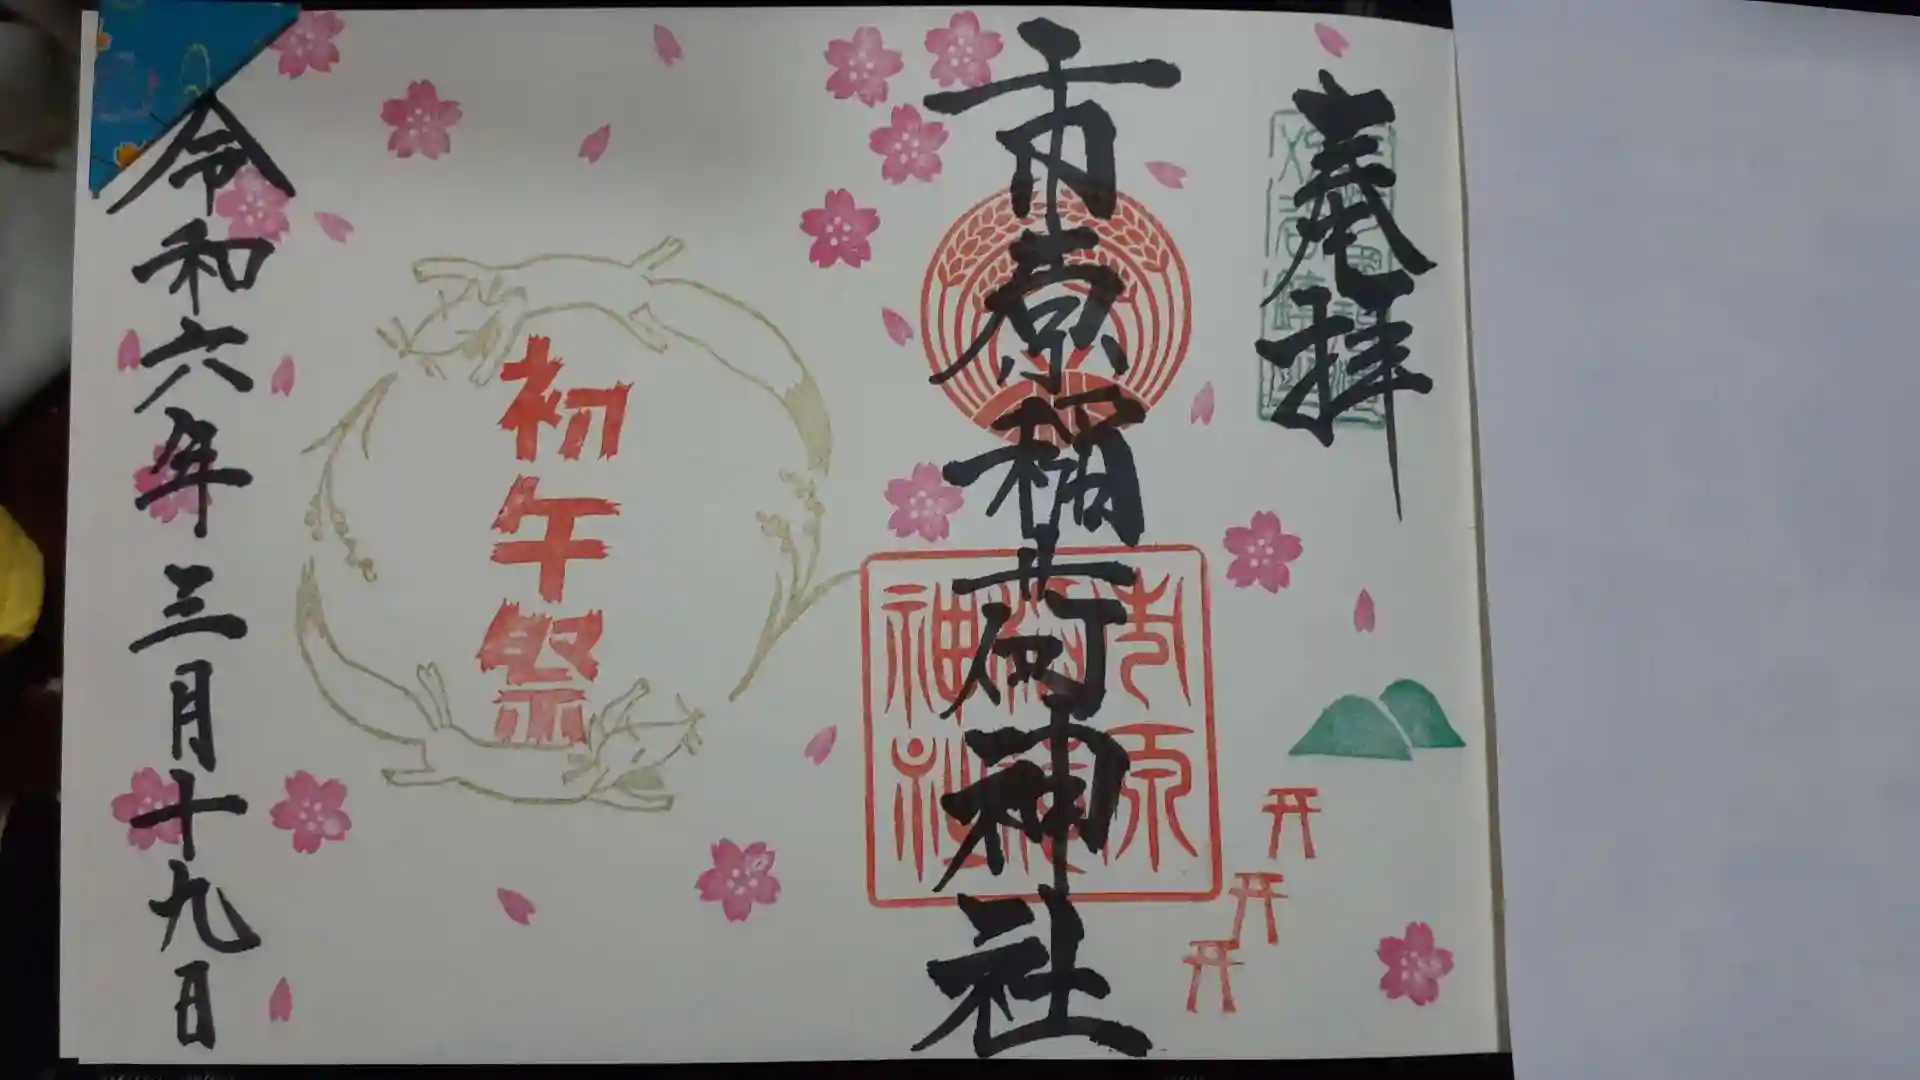 奉拝
市原稲荷神社
市原
稲荷
神社
初午祭
令和六年三月十九日